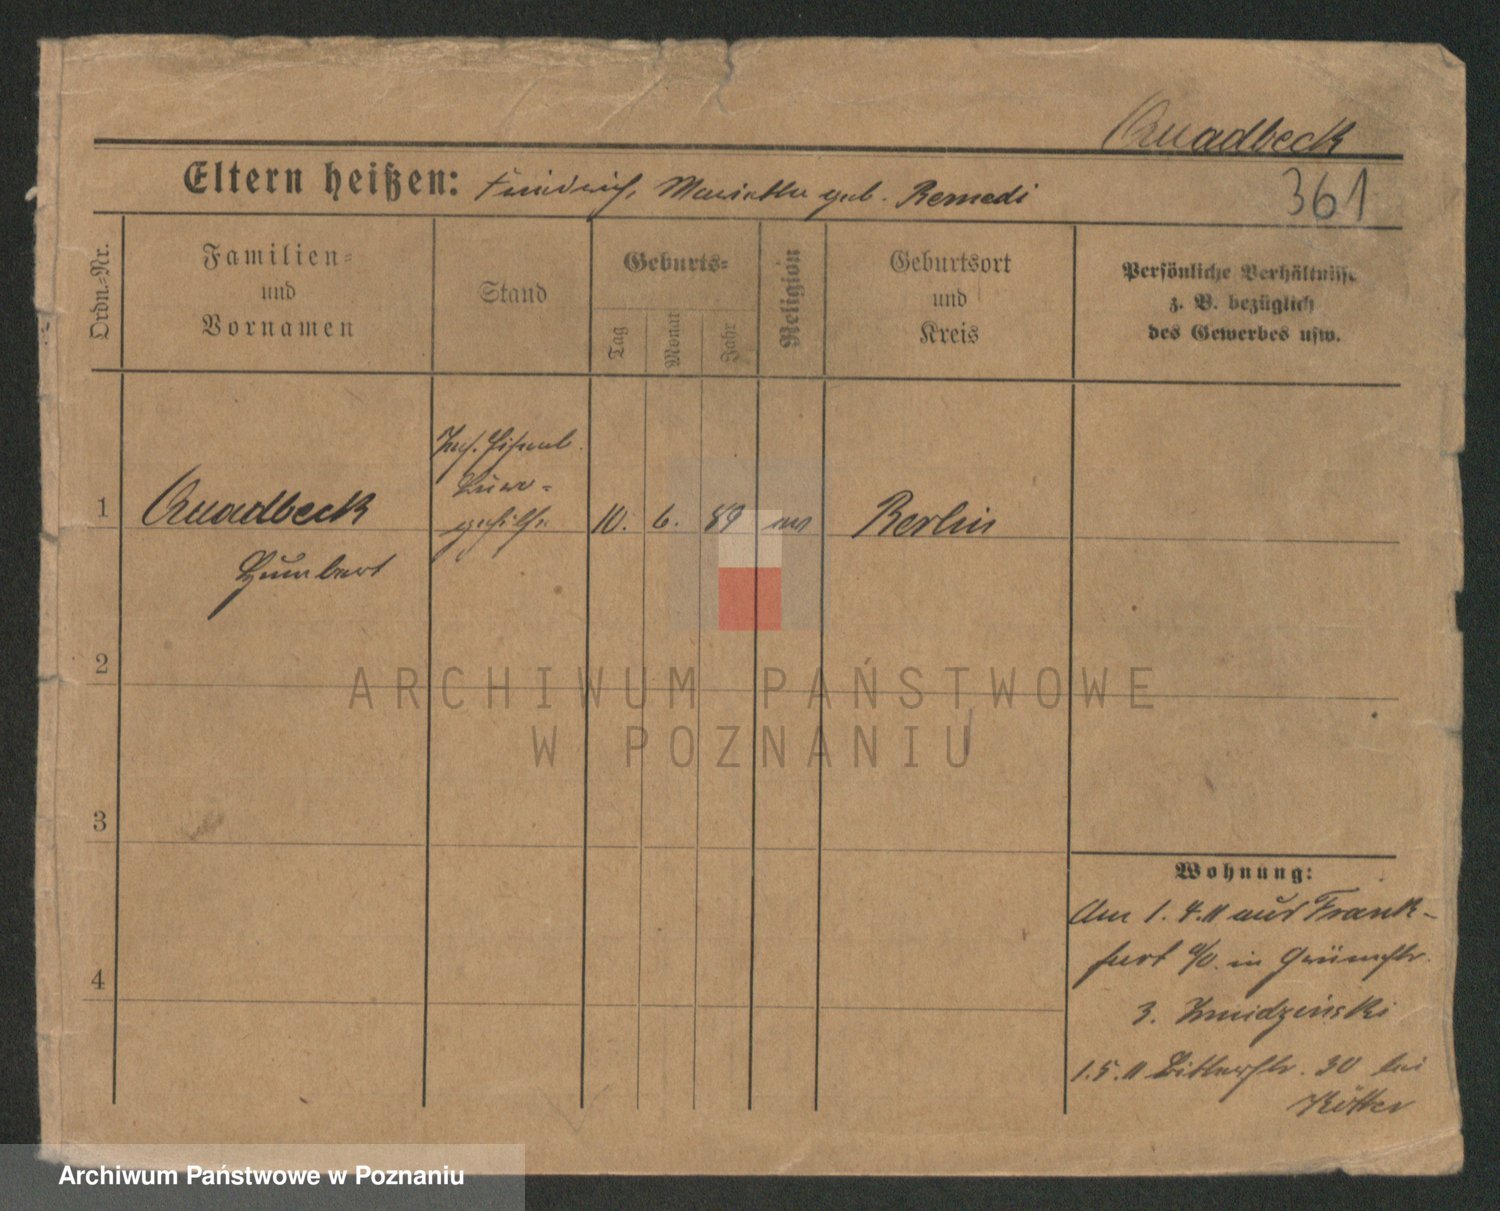 Quadbeck
Eltern heißen: Friedrich, Marietta geb. Remedi
361
Ordn.-Nr.
Familien-
und
Vornamen
Stand
Geburts-
Tag
Monat
Jahr
Religion
Geburtsort
und
Kreis
Persönliche Verhältnisse
z. B. bezüglich
des Gewerbes usw.
1
Quadbeck
Humbert
Eisenb.
Büro-
gehilfe
10.
6.
89
ev
Berlin
2
3
4
Wohnung:
Am 1.4.11 aus Frank-
furt a/O. in
3.
1.5.11 Bitterstr. 30 bei
Kötter
ARCHIWUM PAŃSTWOWE
W POZNANIU
Archiwum Państwowe w Poznaniu